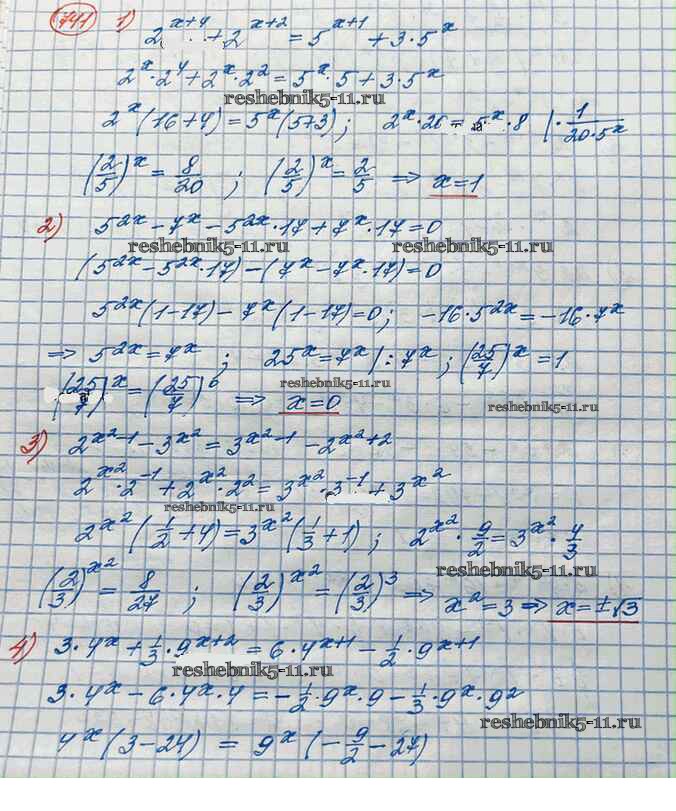 741 1) 2^(x+4) + 2^(x+2) = 5^(x+1) + 3·5^x
2^x·2^4 + 2^x·2^2 = 5^x·5 + 3·5^x
reshebnik5-11.ru
2^x(16+4) = 5^x(5+3); 2^x·20 = 5^x·8 |·1/(20·5^x)
(2/5)^x = 8/20; (2/5)^x = 2/5 => x=1
2) 5^(2x) - 7^x - 5^(2x)·17 + 7^x·17 = 0
reshebnik5-11.ru reshebnik5-11.ru
(5^(2x) - 5^(2x)·17) - (7^x - 7^x·17) = 0
5^(2x)(1-17) - 7^x(1-17) = 0; -16·5^(2x) = -16·7^x
=> 5^(2x) = 7^x; 25^x = 7^x |: 7^x; (25/7)^x = 1
(25/7)^x = (25/7)^0 => x=0
reshebnik5-11.ru reshebnik5-11.ru
3) 2^(x^2-1) - 3^(x^2) = 3^(x^2-1) - 2^(x^2+2)
2^(x^2)·2^(-1) + 2^(x^2)·2^2 = 3^(x^2)·3^(-1) + 3^(x^2)
reshebnik5-11.ru
2^(x^2)(1/2+4) = 3^(x^2)(1/3+1); 2^(x^2)·9/2 = 3^(x^2)·4/3
(2/3)^(x^2) = 8/27; (2/3)^(x^2) = (2/3)^3 => x^2=3 => x=±√3
4) 3·4^x + 1/3·9^(x+2) = 6·4^(x+1) - 1/2·9^(x+1)
reshebnik5-11.ru
3·4^x - 6·4^x·4 = -1/2·9^x·9 - 1/3·9^x·9^2
reshebnik5-11.ru
4^x(3-24) = 9^x(-9/2-27)